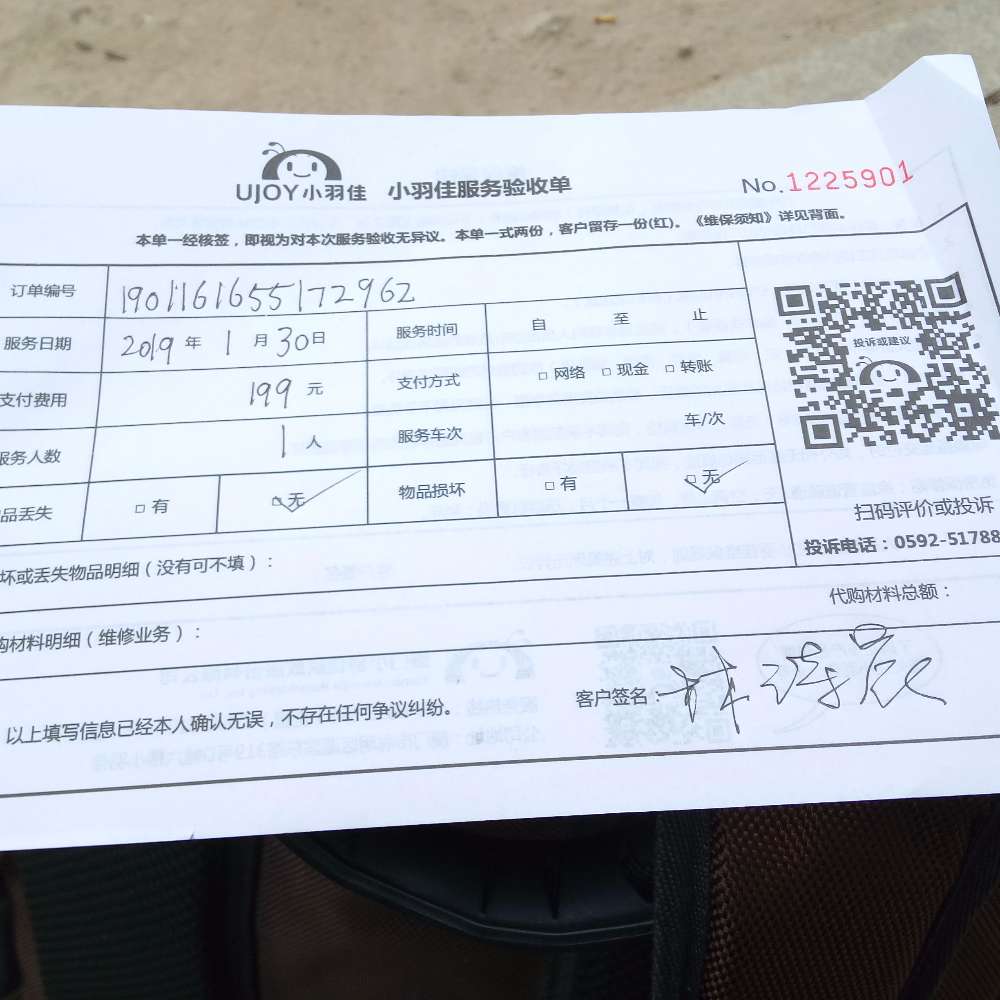 UJOY小羽佳 小羽佳服务验收单 No.1225901
本单一经核签，即视为对本次服务验收无异议。本单一式两份，客户留存一份(红)。《维保须知》详见背面。
订单编号 1901161655172962
服务日期 2019 年 1 月 30 日 服务时间 自 至 止
支付费用 199 元 支付方式 □ 网络 □ 现金 □ 转账
服务人数 1 人 服务车次 车/次
品丢失 □ 有 □ 无 物品损坏 □ 有 □ 无
投诉或建议
扫码评价或投诉
投诉电话：0592-51788
坏或丢失物品明细（没有可不填）：
购材料明细（维修业务）： 代购材料总额：
以上填写信息已经本人确认无误，不存在任何争议纠纷。 客户签名：林